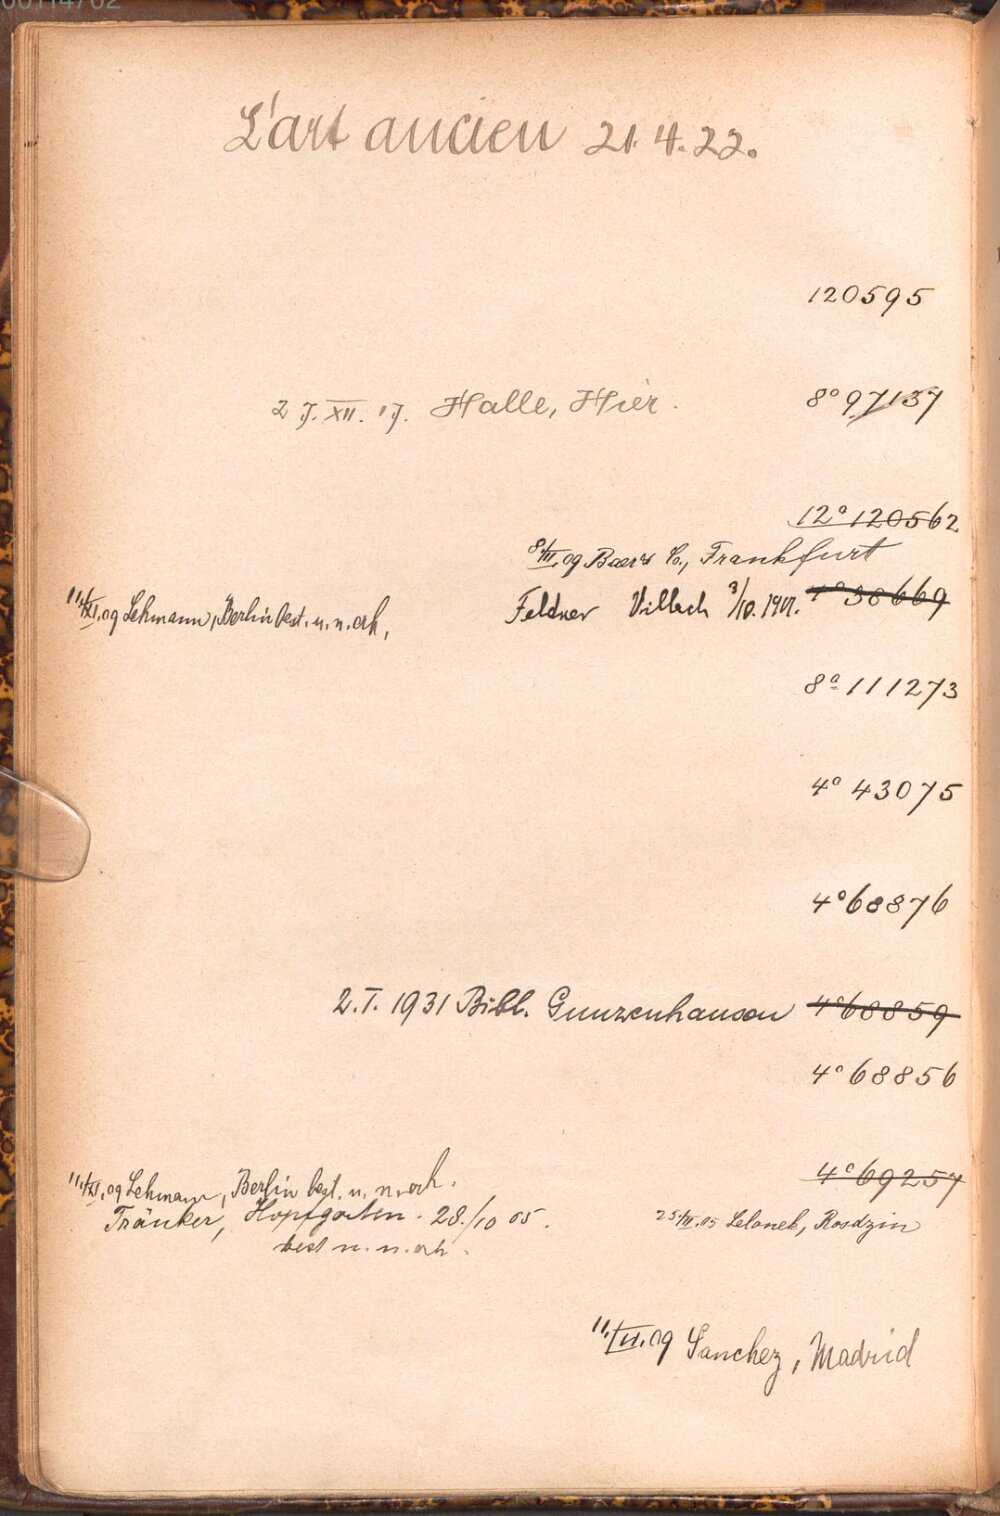 00114702
L'art ancien 21.4.22.
120595
27. XII. 17. Halle, Hier.
8° 97137
12° 120562
8/III.09 Baer & Co., Frankfurt
11./XI.09 Lehmann, Berlin best. u. n. erh.
Feldner Villach 3/10.1901. 4° 38669
8° 111273
4° 43075
4° 68876
2.I.1931 Bibl. Gunzenhausen 4° 68859
4° 68856
4° 69257
11./XI.09 Lehmann, Berlin best. u. n. erh.
Tränker, Hopfgarten. 28./10 05.
25/III.05 Lelonek, Rosdzin
best u. n. erh.
11./VI.09 Sanchez, Madrid